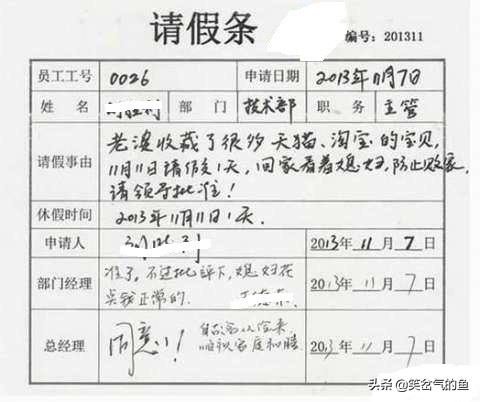 请假条
编号：201311
员工工号 0026 申请日期 2013年11月7日
姓 名 部 门 技术部 职 务 主管
请假事由
老婆收藏了很多天猫、淘宝的宝贝，
11月11日请假1天，回家看着媳妇，防止败家，
请领导批准！
休假时间 2013年11月11日1天.
申请人 2013年11月7日
部门经理
准了，不过批评下，媳妇花
点钱正常的. 2013年11月7日
总经理 同意！
家庭和睦 2013年11月7日
头条@笑岔气的鱼